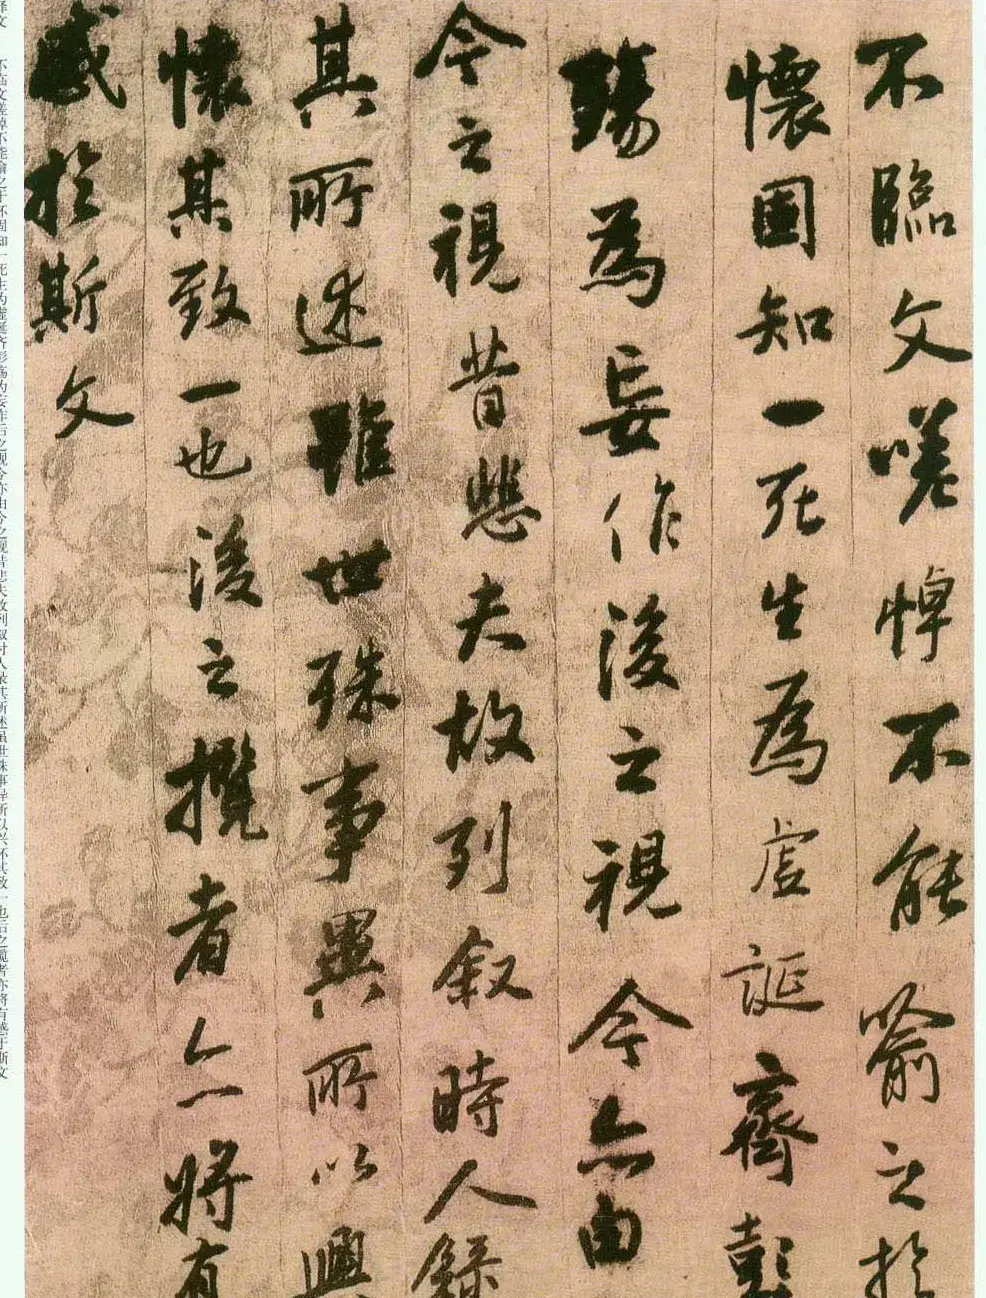 不臨文嗟悼不能喻之於
懷固知一死生為虛誕齊彭
殤為妄作後之視今亦由
今之視昔悲夫故列叙時人錄
其所述雖世殊事異所以興
懷其致一也後之攬者亦將有
感於斯文
释文 不临文嗟悼不能喻之于怀固知一死生为虚诞齐彭殇为妄作后之视今亦由今之视昔悲夫故列叙时人录其所述虽世殊事异所以兴怀其致一也后之揽者亦将有感于斯文